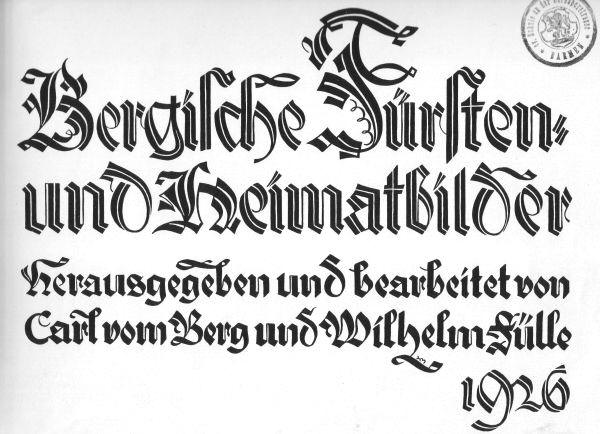 Bergische Fürsten-
und Heimatbilder
Herausgegeben und bearbeitet von
Carl vom Berg und Wilhelm Fülle
1926
BARMEN